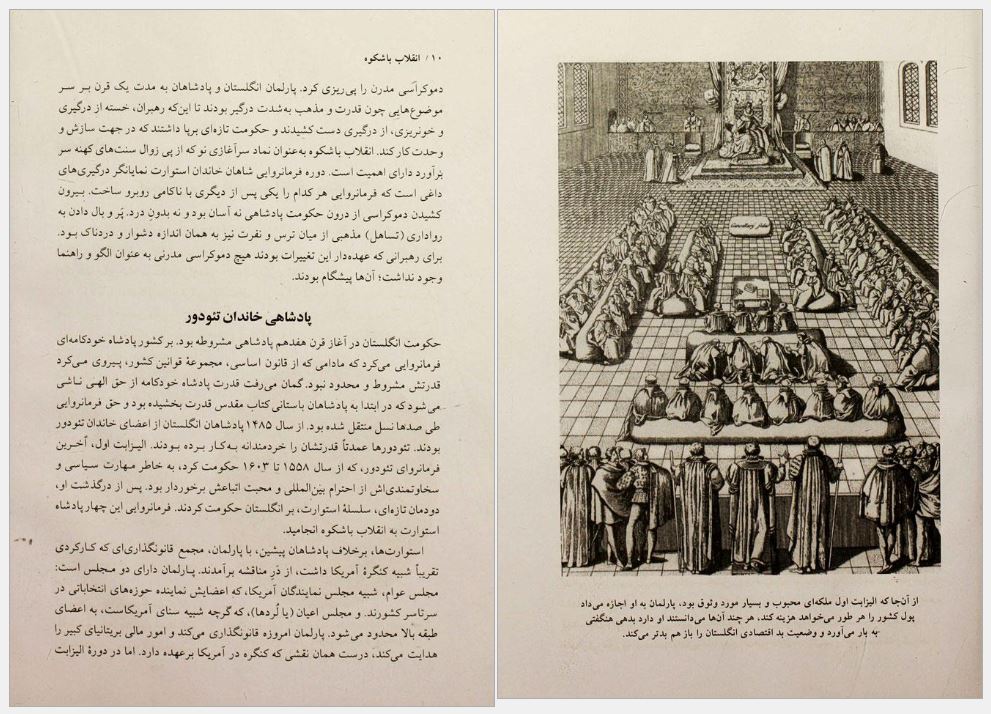 ۱۰ / انقلاب باشکوه
دموکراسی مدرن را پی‌ریزی کرد. پارلمان انگلستان و پادشاهان به مدت یک قرن بر سر
موضوع‌هایی چون قدرت و مذهب به‌شدت درگیر بودند تا این‌که رهبران، خسته از درگیری
و خونریزی، از درگیری دست کشیدند و حکومت تازه‌ای برپا داشتند که در جهت سازش و
وحدت کار کند. انقلاب باشکوه به‌عنوان نماد سرآغازی نو که از پی زوال سنت‌های کهنه سر
برآورد دارای اهمیت است. دوره فرمانروایی شاهان خاندان استوارت نمایانگر درگیری‌های
داغی است که فرمانروایی هر کدام را یکی پس از دیگری با ناکامی روبرو ساخت. بیرون
کشیدن دموکراسی از درون حکومت پادشاهی نه آسان بود و نه بدونِ درد. پَر و بال دادن به
رواداری (تساهل) مذهبی از میان ترس و نفرت نیز به همان اندازه دشوار و دردناک بود.
برای رهبرانی که عهده‌دار این تغییرات بودند هیچ دموکراسی مدرنی به عنوان الگو و راهنما
وجود نداشت؛ آن‌ها پیشگام بودند.
پادشاهی خاندان تئودور
حکومت انگلستان در آغاز قرن هفدهم پادشاهی مشروطه بود. بر کشور پادشاه خودکامه‌ای
فرمانروایی می‌کرد که مادامی که از قانون اساسی، مجموعهٔ قوانین کشور، پیروی می‌کرد
قدرتش مشروط و محدود نبود. گمان می‌رفت قدرت پادشاه خودکامه از حق الهی ناشی
می‌شود که در ابتدا به پادشاهان باستانی کتاب مقدس قدرت بخشیده بود و حق فرمانروایی
طی صدها نسل منتقل شده بود. از سال ۱۴۸۵ پادشاهان انگلستان از اعضای خاندان تئودور
بودند. تئودورها عمدتاً قدرتشان را خردمندانه به‌کار برده بودند. الیزابت اول، آخرین
فرمانروای تئودور، که از سال ۱۵۵۸ تا ۱۶۰۳ حکومت کرد، به خاطر مهارت سیاسی و
سخاوتمندی‌اش از احترام بین‌المللی و محبت اتباعش برخوردار بود. پس از درگذشت او،
دودمان تازه‌ای، سلسلهٔ استوارت، بر انگلستان حکومت کردند. فرمانروایی این چهار پادشاه
استوارت به انقلاب باشکوه انجامید.
استوارت‌ها، برخلاف پادشاهان پیشین، با پارلمان، مجمع قانونگذاری‌ای که کارکردی
تقریباً شبیه کنگرهٔ آمریکا داشت، از دَرِ مناقشه برآمدند. پارلمان دارای دو مجلس است:
مجلس عوام، شبیه مجلس نمایندگان آمریکا، که اعضایش نماینده حوزه‌های انتخاباتی در
سرتاسر کشورند. و مجلس اعیان (یا لُردها)، که گرچه شبیه سنای آمریکاست، به اعضای
طبقه بالا محدود می‌شود. پارلمان امروزه قانونگذاری می‌کند و امور مالی بریتانیای کبیر را
هدایت می‌کند، درست همان نقشی که کنگره در آمریکا برعهده دارد. اما در دورهٔ الیزابت
از آن‌جا که الیزابت اول ملکه‌ای محبوب و بسیار مورد وثوق بود، پارلمان به او اجازه می‌داد
پول کشور را هر طور می‌خواهد هزینه کند، هر چند آن‌ها می‌دانستند او دارد بدهی هنگفتی
به بار می‌آورد و وضعیت بد اقتصادی انگلستان را باز هم بدتر می‌کند.